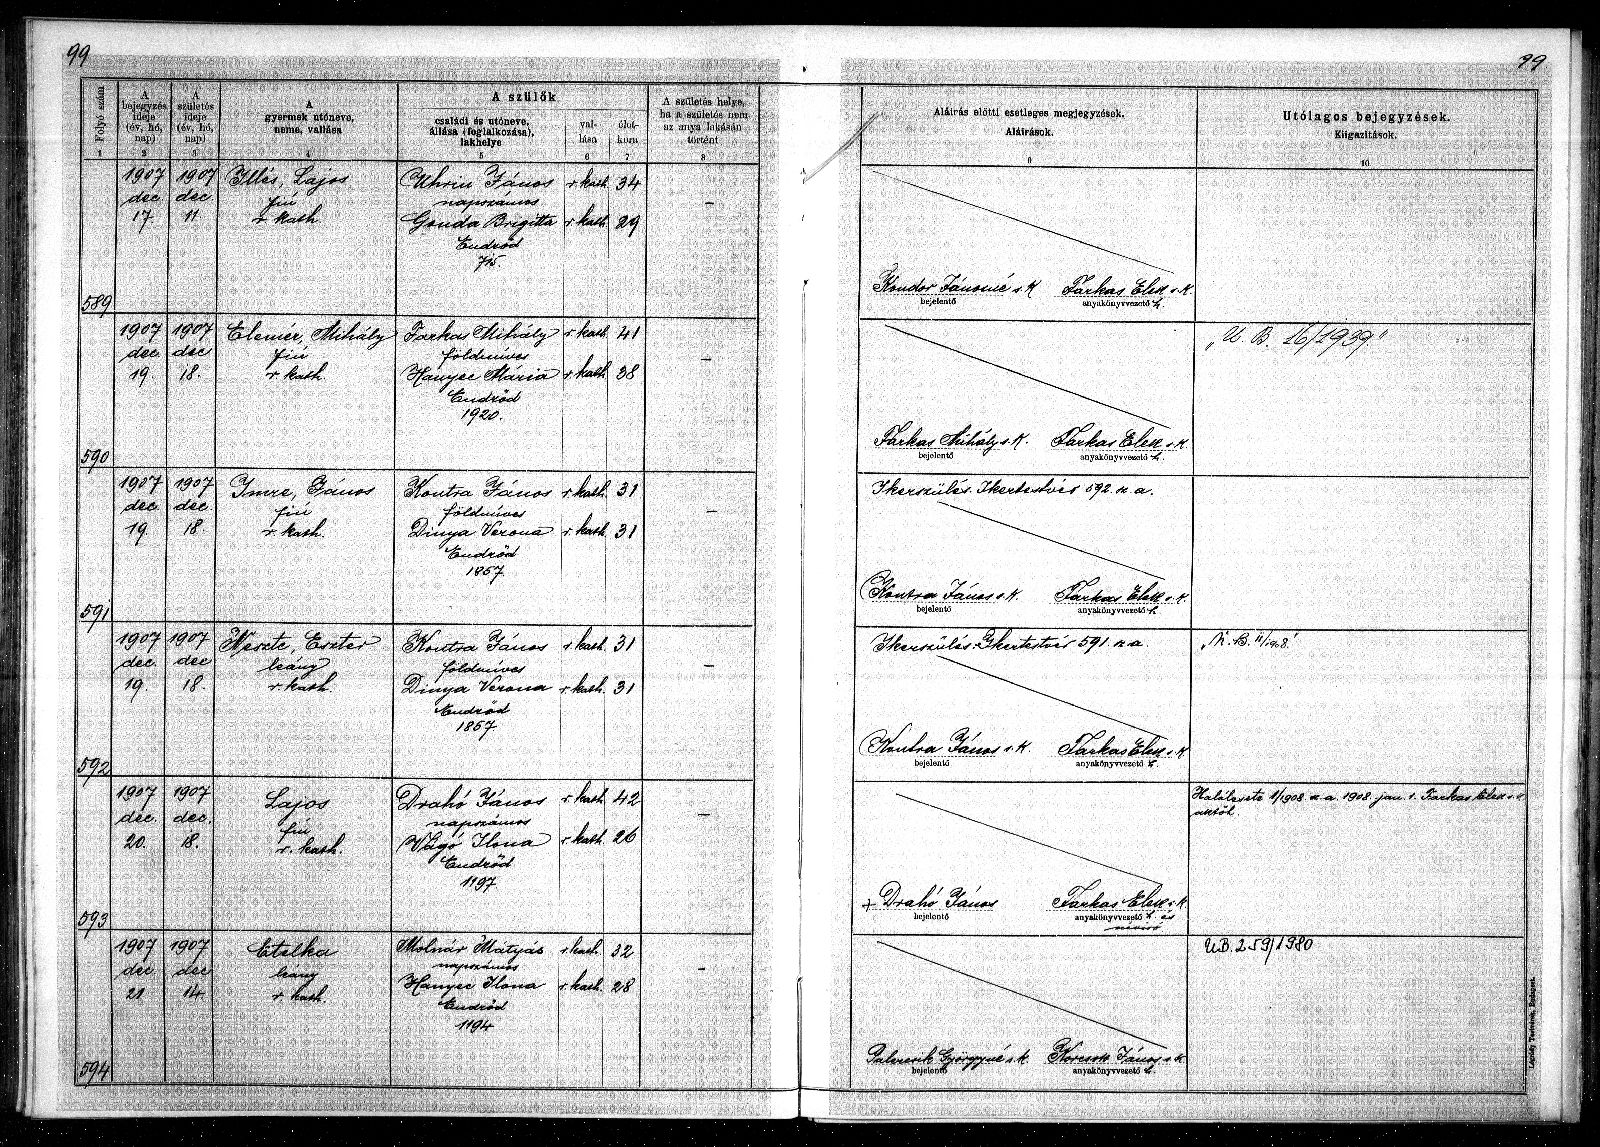 99
99
Folyó szám
A bejegyzés ideje (év, hó, nap)
A születés ideje (év, hó, nap)
A gyermek utóneve, neme, vallása
A szülők
családi és utóneve, állása (foglalkozása), lakhelye
vallása
életkora
A születés helye, ha a születés nem az anya lakásán történt
Aláírás előtti esetleges megjegyzések.
Aláírások.
Utólagos bejegyzések.
Kiigazítások.
1 2 3 4 5 6 7 8 9 10
1907 1907 Illés, Lajos Uhrin János r. kath. 34
dec. dec. fiú napszámos –
17 11 r. kath. Gonda Brigitta r. kath. 29
Endrőd
715.
Kondor Jánosné s. k. Farkas Elek s. k.
bejelentő anyakönyvvezető h.
589
1907 1907 Elemér, Mihály Farkas Mihály r. kath. 41 „U. B. 16/1939."
dec. dec. fiú földmíves –
19. 18. r. kath. Hanyec Mária r. kath. 38
Endrőd
1920.
Farkas Mihály s. k. Farkas Elek s. k.
bejelentő anyakönyvvezető h.
590
1907 1907 Imre, János Kontra János r. kath. 31 Ikerszülés. Ikertestvér 592 sz. a.
dec. dec. fiú földmíves –
19. 18. r. kath. Dinya Verona r. kath. 31
Endrőd
1857
Kontra János s. k. Farkas Elek s. k.
bejelentő anyakönyvvezető h.
591
1907 1907 Neszte, Eszter Kontra János r. kath. 31 Ikerszülés. Ikertestvér 591 sz. a.
dec. dec. leány földmíves –
19. 18. r. kath. Dinya Verona r. kath. 31
Endrőd
1857
Kontra János s. k. Farkas Elek s. k.
bejelentő anyakönyvvezető h.
592
1907 1907 Lajos Drahó János r. kath. 42 Halálesete 1/1908 sz. a. 1908. jan. 1. Farkas Elek s. k.
dec. dec. fiú napszámos –
20. 18. r. kath. Vágó Ilona r. kath. 26
Endrőd
1197
+ Drahó János Farkas Elek s. k.
bejelentő anyakönyvvezető h. és
névíró
593
1907 1907 Etelka Molnár Mátyás r. kath. 32 UB. 259/1980
dec. dec. leány napszámos –
21 14 r. kath. Hanyec Ilona r. kath. 28
Endrőd
1194
Palercsik Györgyné s. k. Korcsok János s. k.
bejelentő anyakönyvvezető h.
594